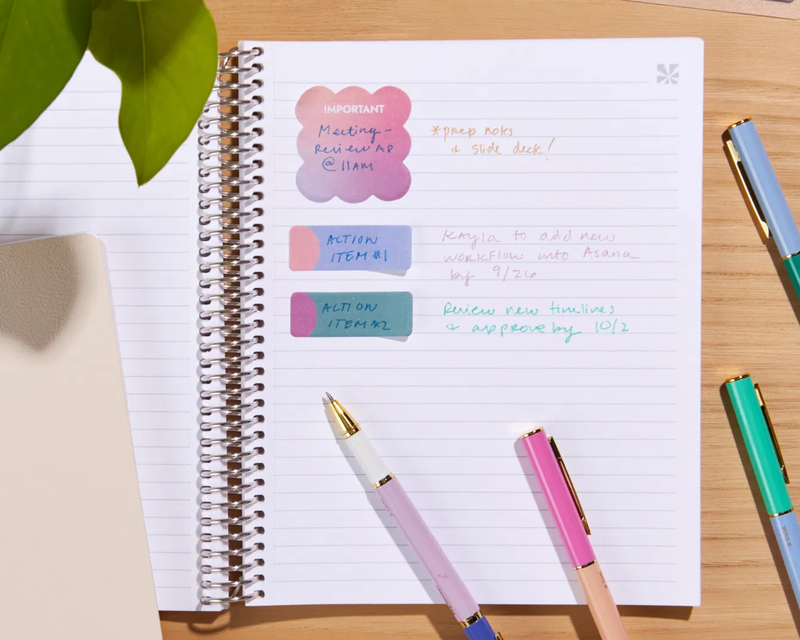 IMPORTANT
Meeting -
Review AP
@ 11AM
*prep notes
& slide deck!
ACTION
ITEM #1
Kayla to add new
workflow into Asana
by 9/26
ACTION
ITEM #2
Review new timelines
& approve by 10/2